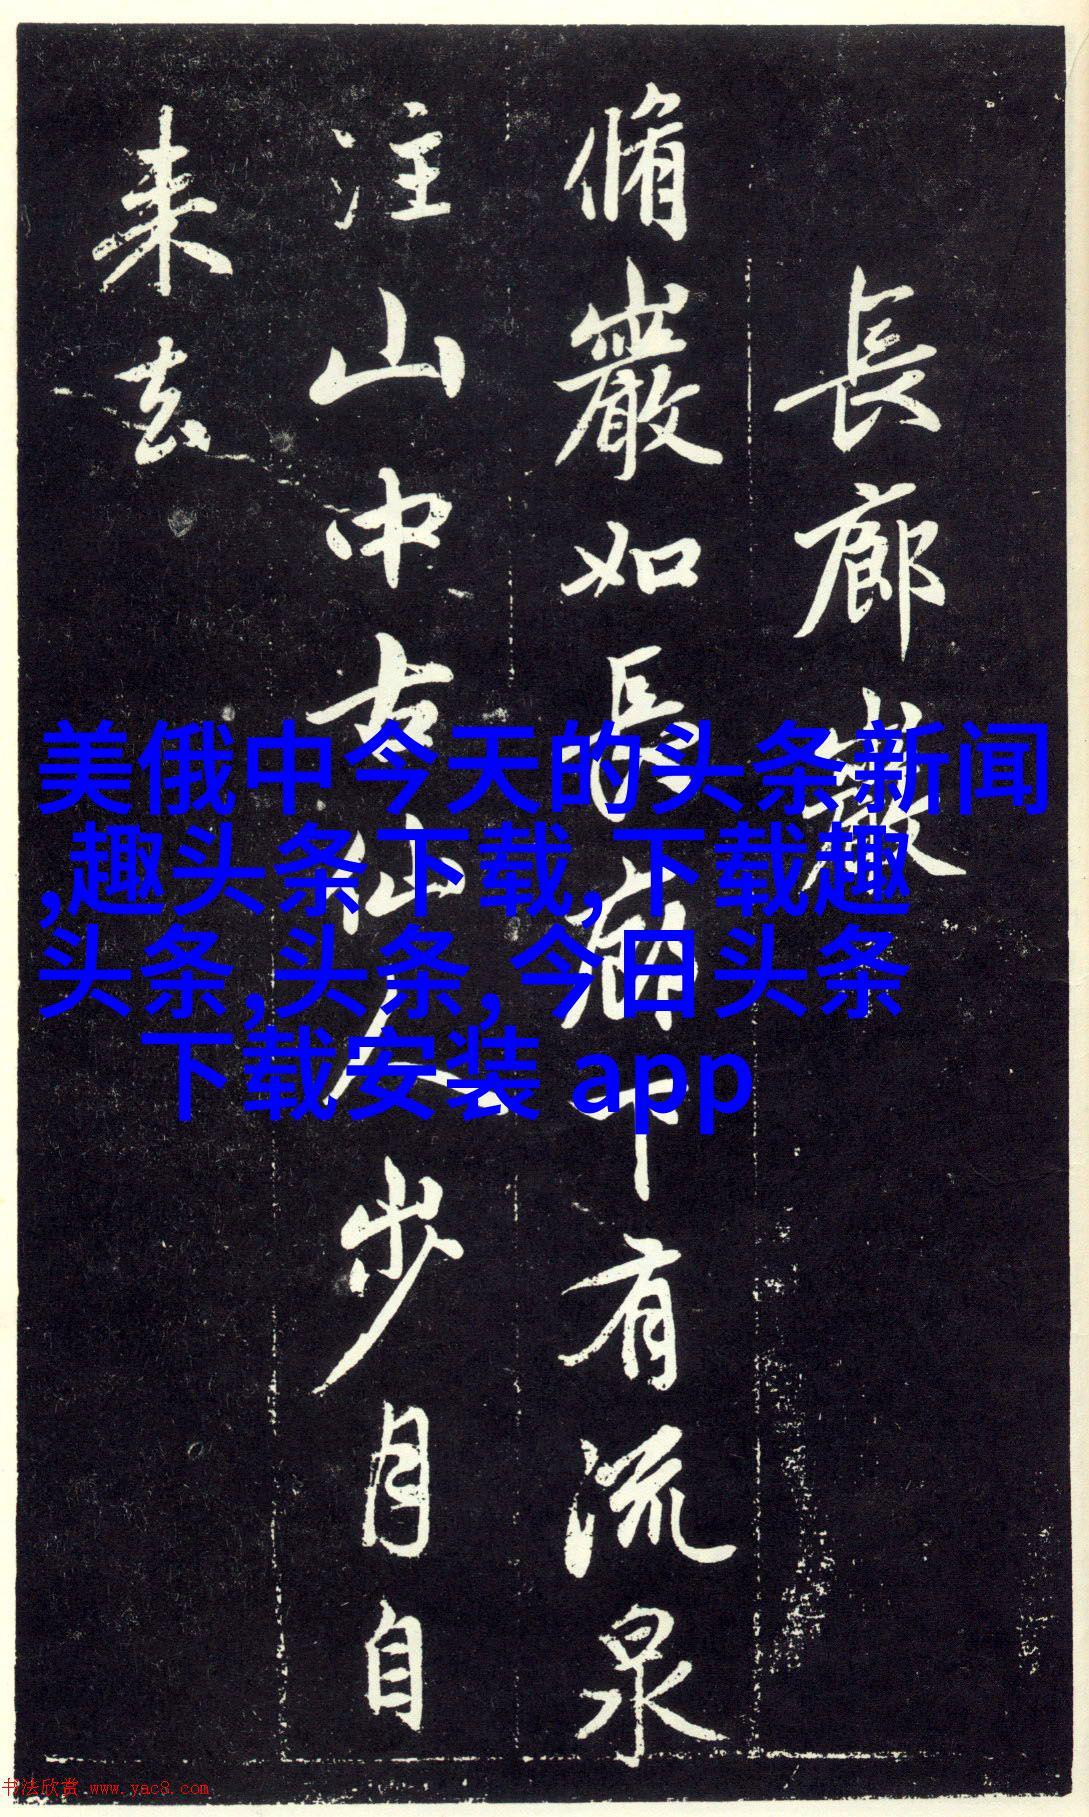 長廊巖
脩巖如長廊下有流泉
注山中古仙人步月自
来去
美俄中今天的头条新闻
,趣头条下载,下载趣
头条,头条, 今日头条
下载安装 app
书法欣赏 www.yac8.com